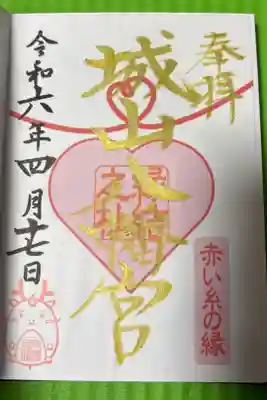 奉拝
城山八幡宮
縁結之社
赤い糸の縁
令和六年四月十七日